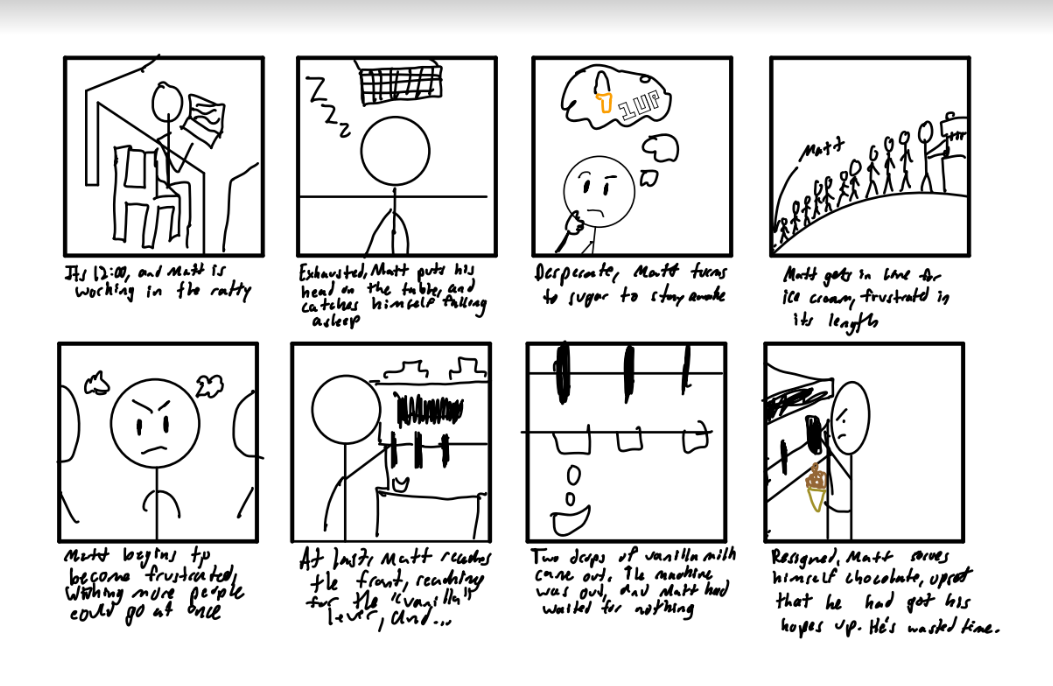 Z
Z
Z
Z
1UP
Matt
Its 12:00, and Matt is
working in the ratty
Exhausted, Matt puts his
head on the table, and
catches himself falling
asleep
Desperate, Matt turns
to sugar to stay awake
Matt gets in line for
ice cream, frustrated in
its length
Matt begins to
become frustrated,
wishing more people
could go at once
At last, Matt reaches
the front, reaching
for the "vanilla"
lever, and...
Two drops of vanilla milk
came out. The machine
was out, and Matt had
waited for nothing
Resigned, Matt serves
himself chocolate, upset
that he had got his
hopes up. He's wasted time.